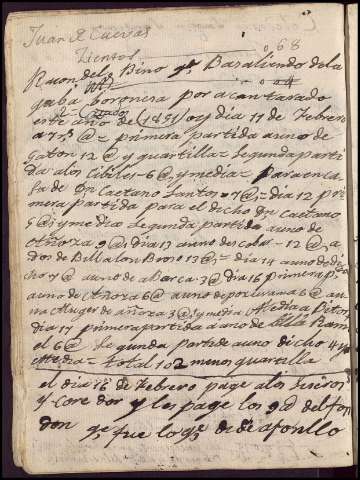 Juan A Cuevas
Zientos 068
Razon del Bino qe. Ba saliendo de la
04
gaba boronera por acantarado
este año de (1891) oy dia 11 de Febrero
a 7 rs @ = primera partida a uno de
Gaton 12 @ y quartilla = Segunda parti
da a los Cibiles = 6 @ y media = para en ca
sa de Dn Caetano Santos = 7 @ = dia 12 pri
mera partida para el dicho Dn Caetano
5 @ y media segunda partida a uno de
Añoza 9 @ dia 13 a uno des coba - 12 @ a
dos de Billalon Bono 13 @ = dia 14 a uno de di
cho 7 @ a uno de abarca 3 @ dia 16 primera p
a uno de Añoza 6 @ a uno de 6 @ a u
na Muger de añoza 3 @ y media
dia 17 primera partida a uno de Rami
el 6 @ segunda partida a uno dicho 4 y
Media = total 102 menos quartilla
el dia 16 de Febrero page a los
y Coredor y les page los 9 @ del fon
don qe fue lo qe di de afonllo